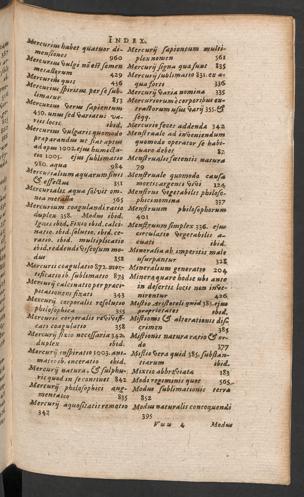 INDEX.
Mercurius habet quatuor di-
mensiones 960
Mercurius vulgi nō est semen
metallorum 429
Mercurius quis 436
Mercurius spiritus per se subli-
matur 853
Mercurius verus sapientum
450. unus sed variaeni va-
rios locos ibid.
Mercurius vulgaris quomodo
praeparandus ut fiat aptus
ad opus 1002. ejus humecta-
tio 1005. ejus sublimatio
980. aqua 984
Mercurialium aquarum finis
& effectus 351
Mercurialis aqua solvit om-
nia metalla 565
Mercurium coagulandi ratio
duplex 358. Modus ibid.
Ignis ibid. fixio ibid. calci-
natio. ibid. solutio, ibid. ce-
ratio, ibid. multiplicatio
ibid. reddendi viscosum mo-
dus 358
Mercurii coagulatio 872. mor-
tificatio ib. sublimatio 873
Mercurij calcinatio per praeci-
pitationem fixati 343
Mercurij corporalis resolutio
philosophica 355
Mercurii corporalis reviviff-
catis coagulatio 358
Mercurij fixio necessaria 342.
duplex ibid.
Mercurij inspiratio 1003. ani-
matio ib. inceratio ibid.
Mercurij natura, & sulphu-
ris quod in se continet 842
Mercurij philosophici aug-
mentatio 835
Mercurij aquositatis remotio
342
Mercurij sapientum multi-
plex nomen 561
Mercurij signa quae sunt 835
Mercurij sublimatio 831. ex a-
qua fortis 336
Mercurij varia nomina 335
Mercuriorum è corporibus ex-
tractorum usus varij 355. &
seqq.
Mercurio faeces addenda 342
Menstruale ad inveniendum
quomodo operator se habi-
tuare debet 82
Menstrualis faecentis natura
79
Menstruale quomodo causa
mortis argenti vivi 124
Menstruum vegetabilis philoso-
phis nomina 337
Menstruum philosophorum
401
Menstruum simplex 336. ejus
circulatio vegetabilis a-
cuatio ibid.
Mineralia ab imperitis malè
usurpantur 328
Mineralium generatio 204
Minera quare hodie ubi ante
in desertis locis non inve-
niuntur 426
Mistio Aristoteli quid 385. ejus
proprietates ibid.
Mistionis & alterationis dis-
crimen 385
Mistionis natura ratio & or-
do 277
Mista vera quid 385. substan-
tiarum ibid.
Mixtio abbreviata 183
Modi regiminis quot 565.
Modus sublimationis terra
852
Modus naturalis concoquendi
395
Vuu 4 Modus